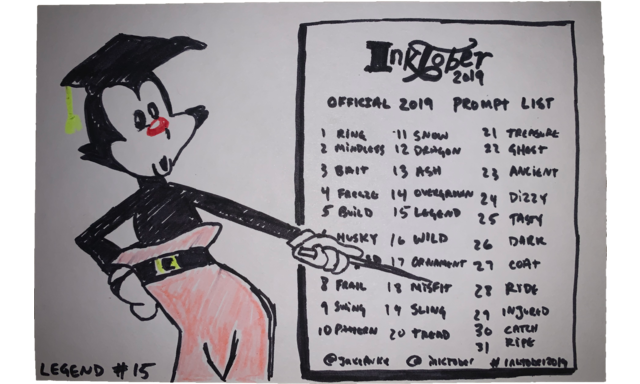 INKTOBER
2019
OFFICIAL 2019 PROMPT LIST
1 RING
2 MINDLESS
3 BAIT
4 FREEZE
5 BUILD
HUSKY
8 FRAIL
9 SWING
10 PATTERN
11 SNOW
12 DRAGON
13 ASH
14 OVERGROWN
15 LEGEND
16 WILD
17 ORNAMENT
18 MISFIT
19 SLING
20 TREAD
21 TREASURE
22 GHOST
23 ANCIENT
24 DIZZY
25 TASTY
26 DARK
27 COAT
28 RIDE
29 INJURED
30 CATCH
31 RIPE
@ INKTOBER # INKTOBER2019
LEGEND #15